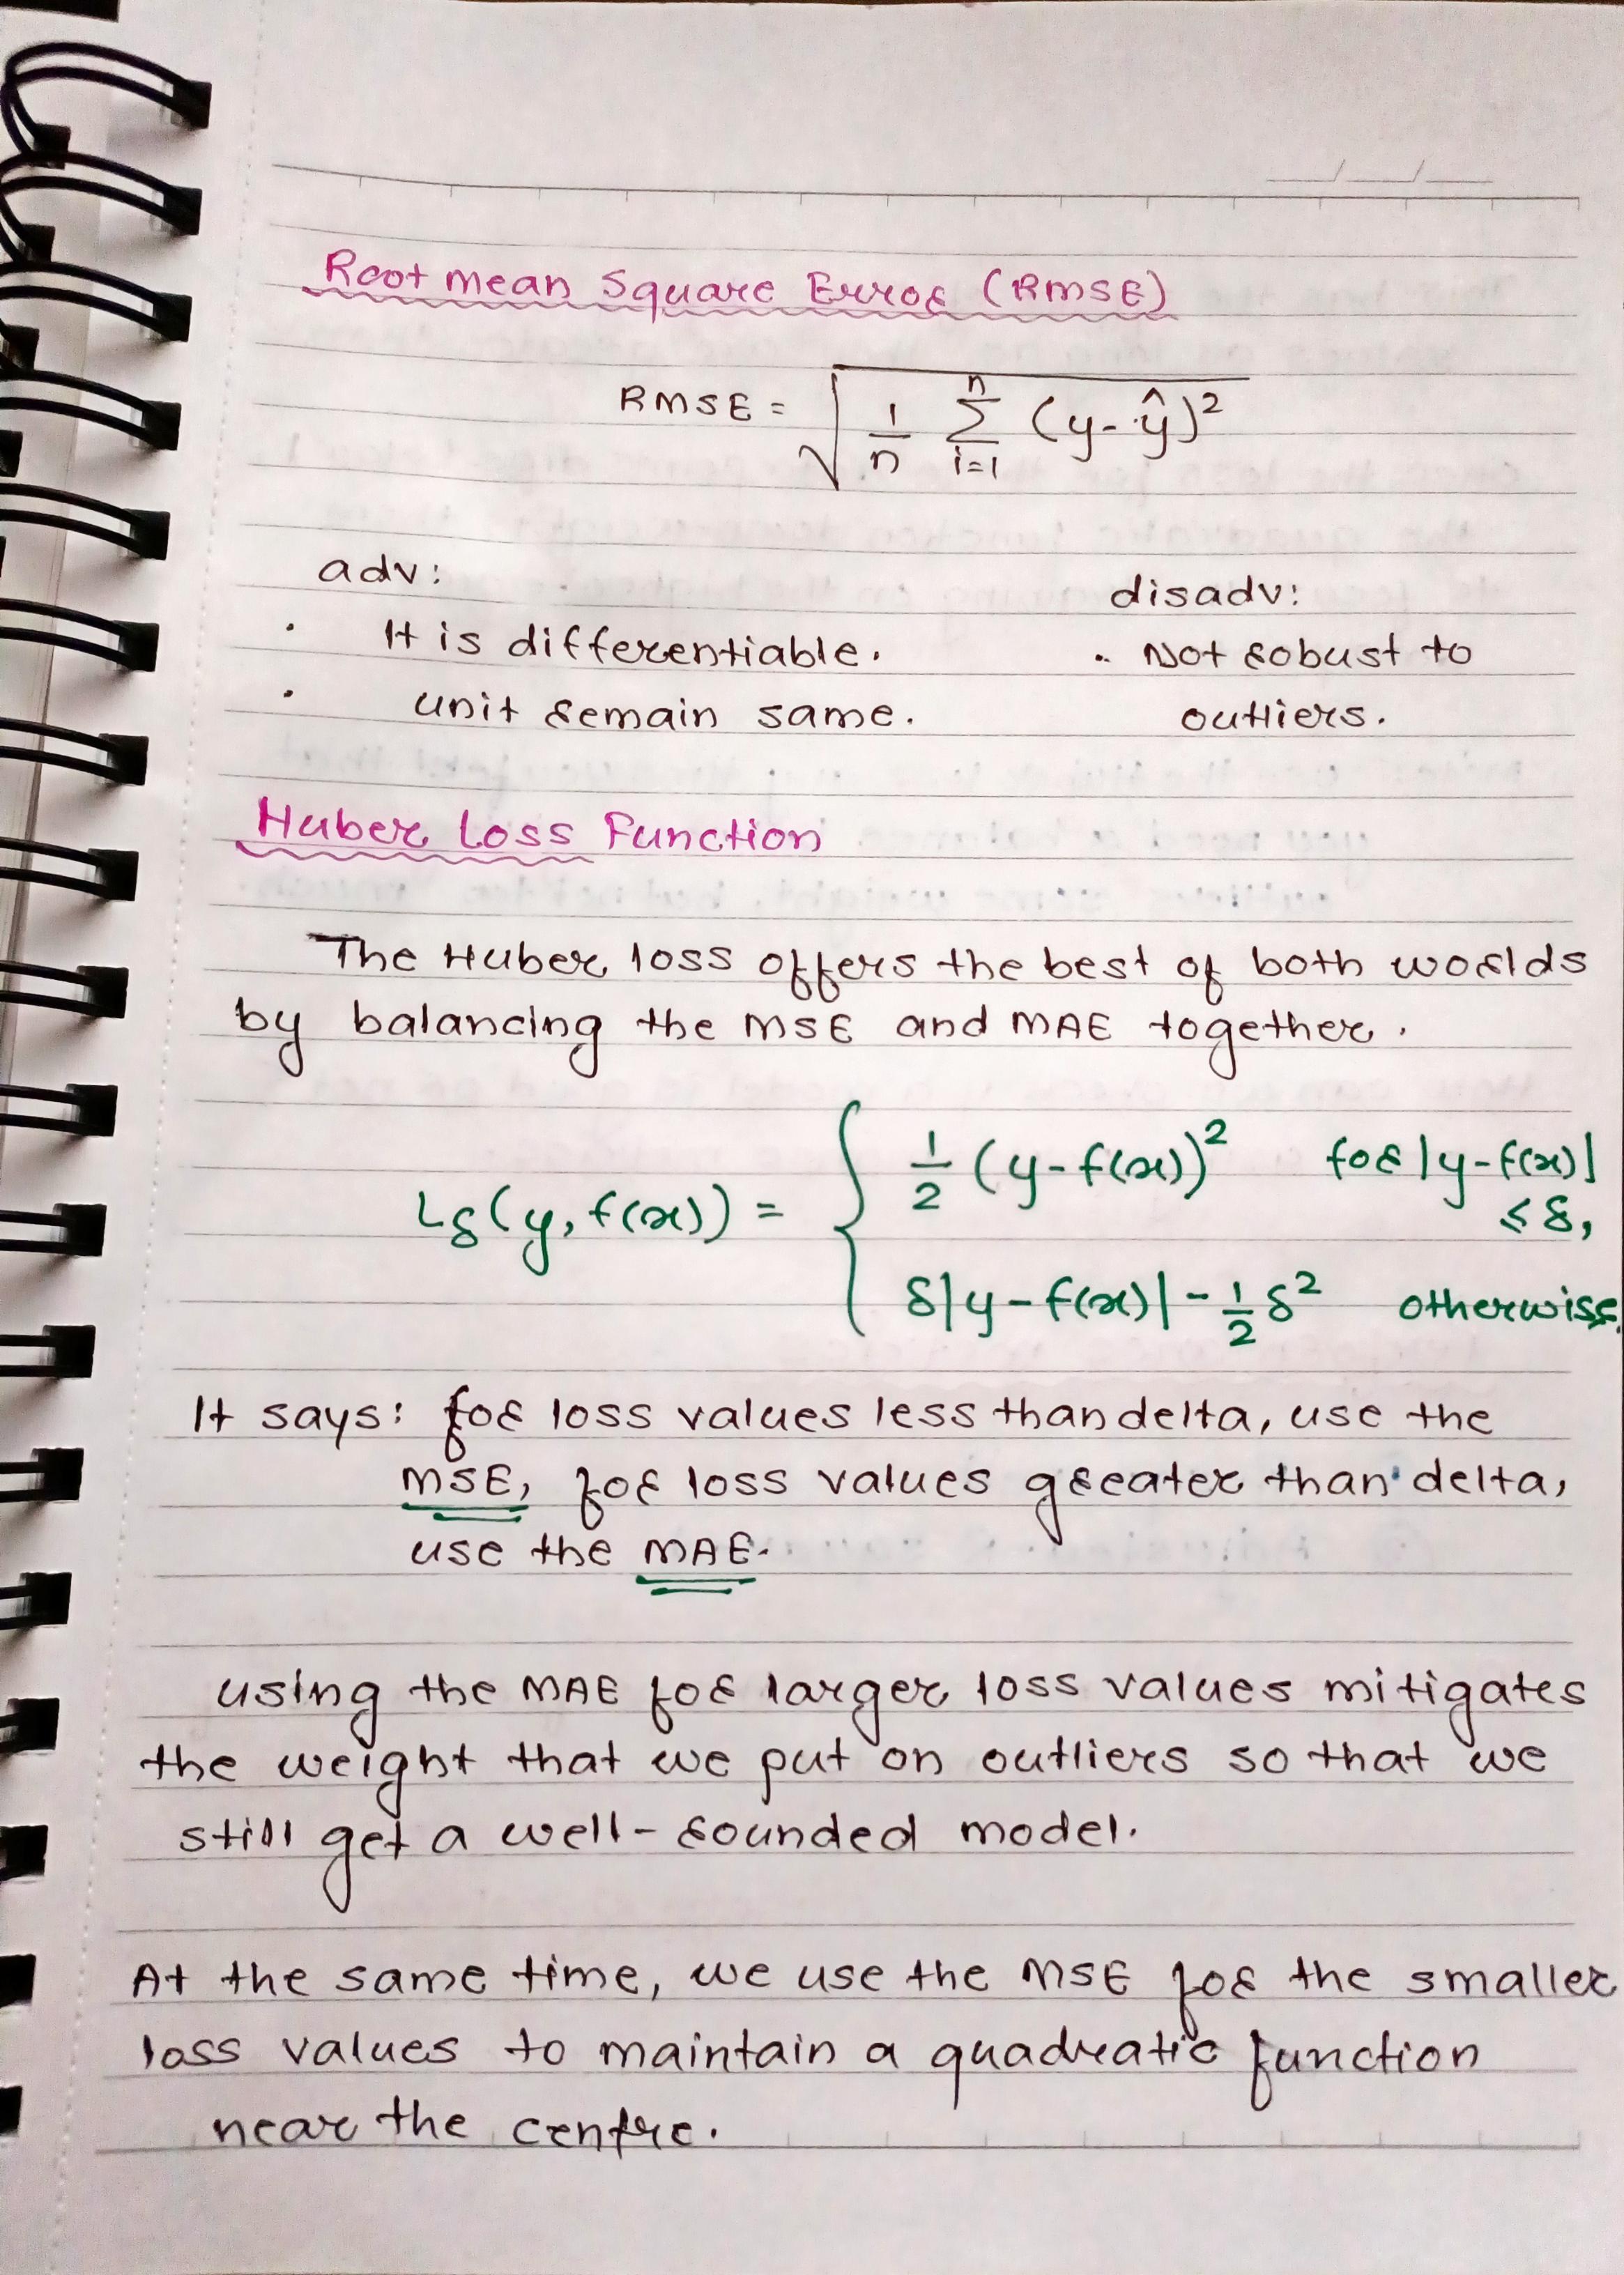 Root mean Square Error (RMSE)
RMSE = √ 1/n Σ_{i=1}^{n} (y-ŷ)²
adv:
disadv:
· It is differentiable.
· Not robust to
· unit remain same.
outliers.
Huber Loss Function
The Huber loss offers the best of both worlds
by balancing the MSE and MAE together.
Lδ(y, f(x)) = { 1/2 (y-f(x))² for |y-f(x)| ≤ δ,
δ|y-f(x)| - 1/2 δ² otherwise.
It says: for loss values less than delta, use the
MSE, for loss values greater than delta,
use the MAE.
using the MAE for larger loss values mitigates
the weight that we put on outliers so that we
still get a well-rounded model.
At the same time, we use the MSE for the smaller
loss values to maintain a quadratic function
near the centre.